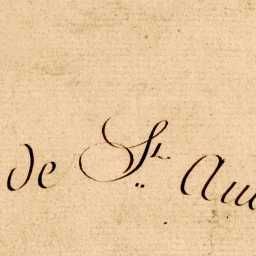 de St. Au